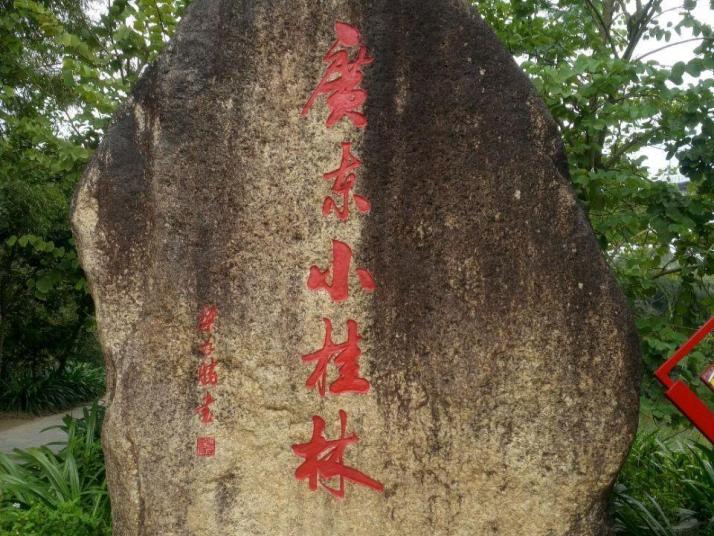 廣东小桂林